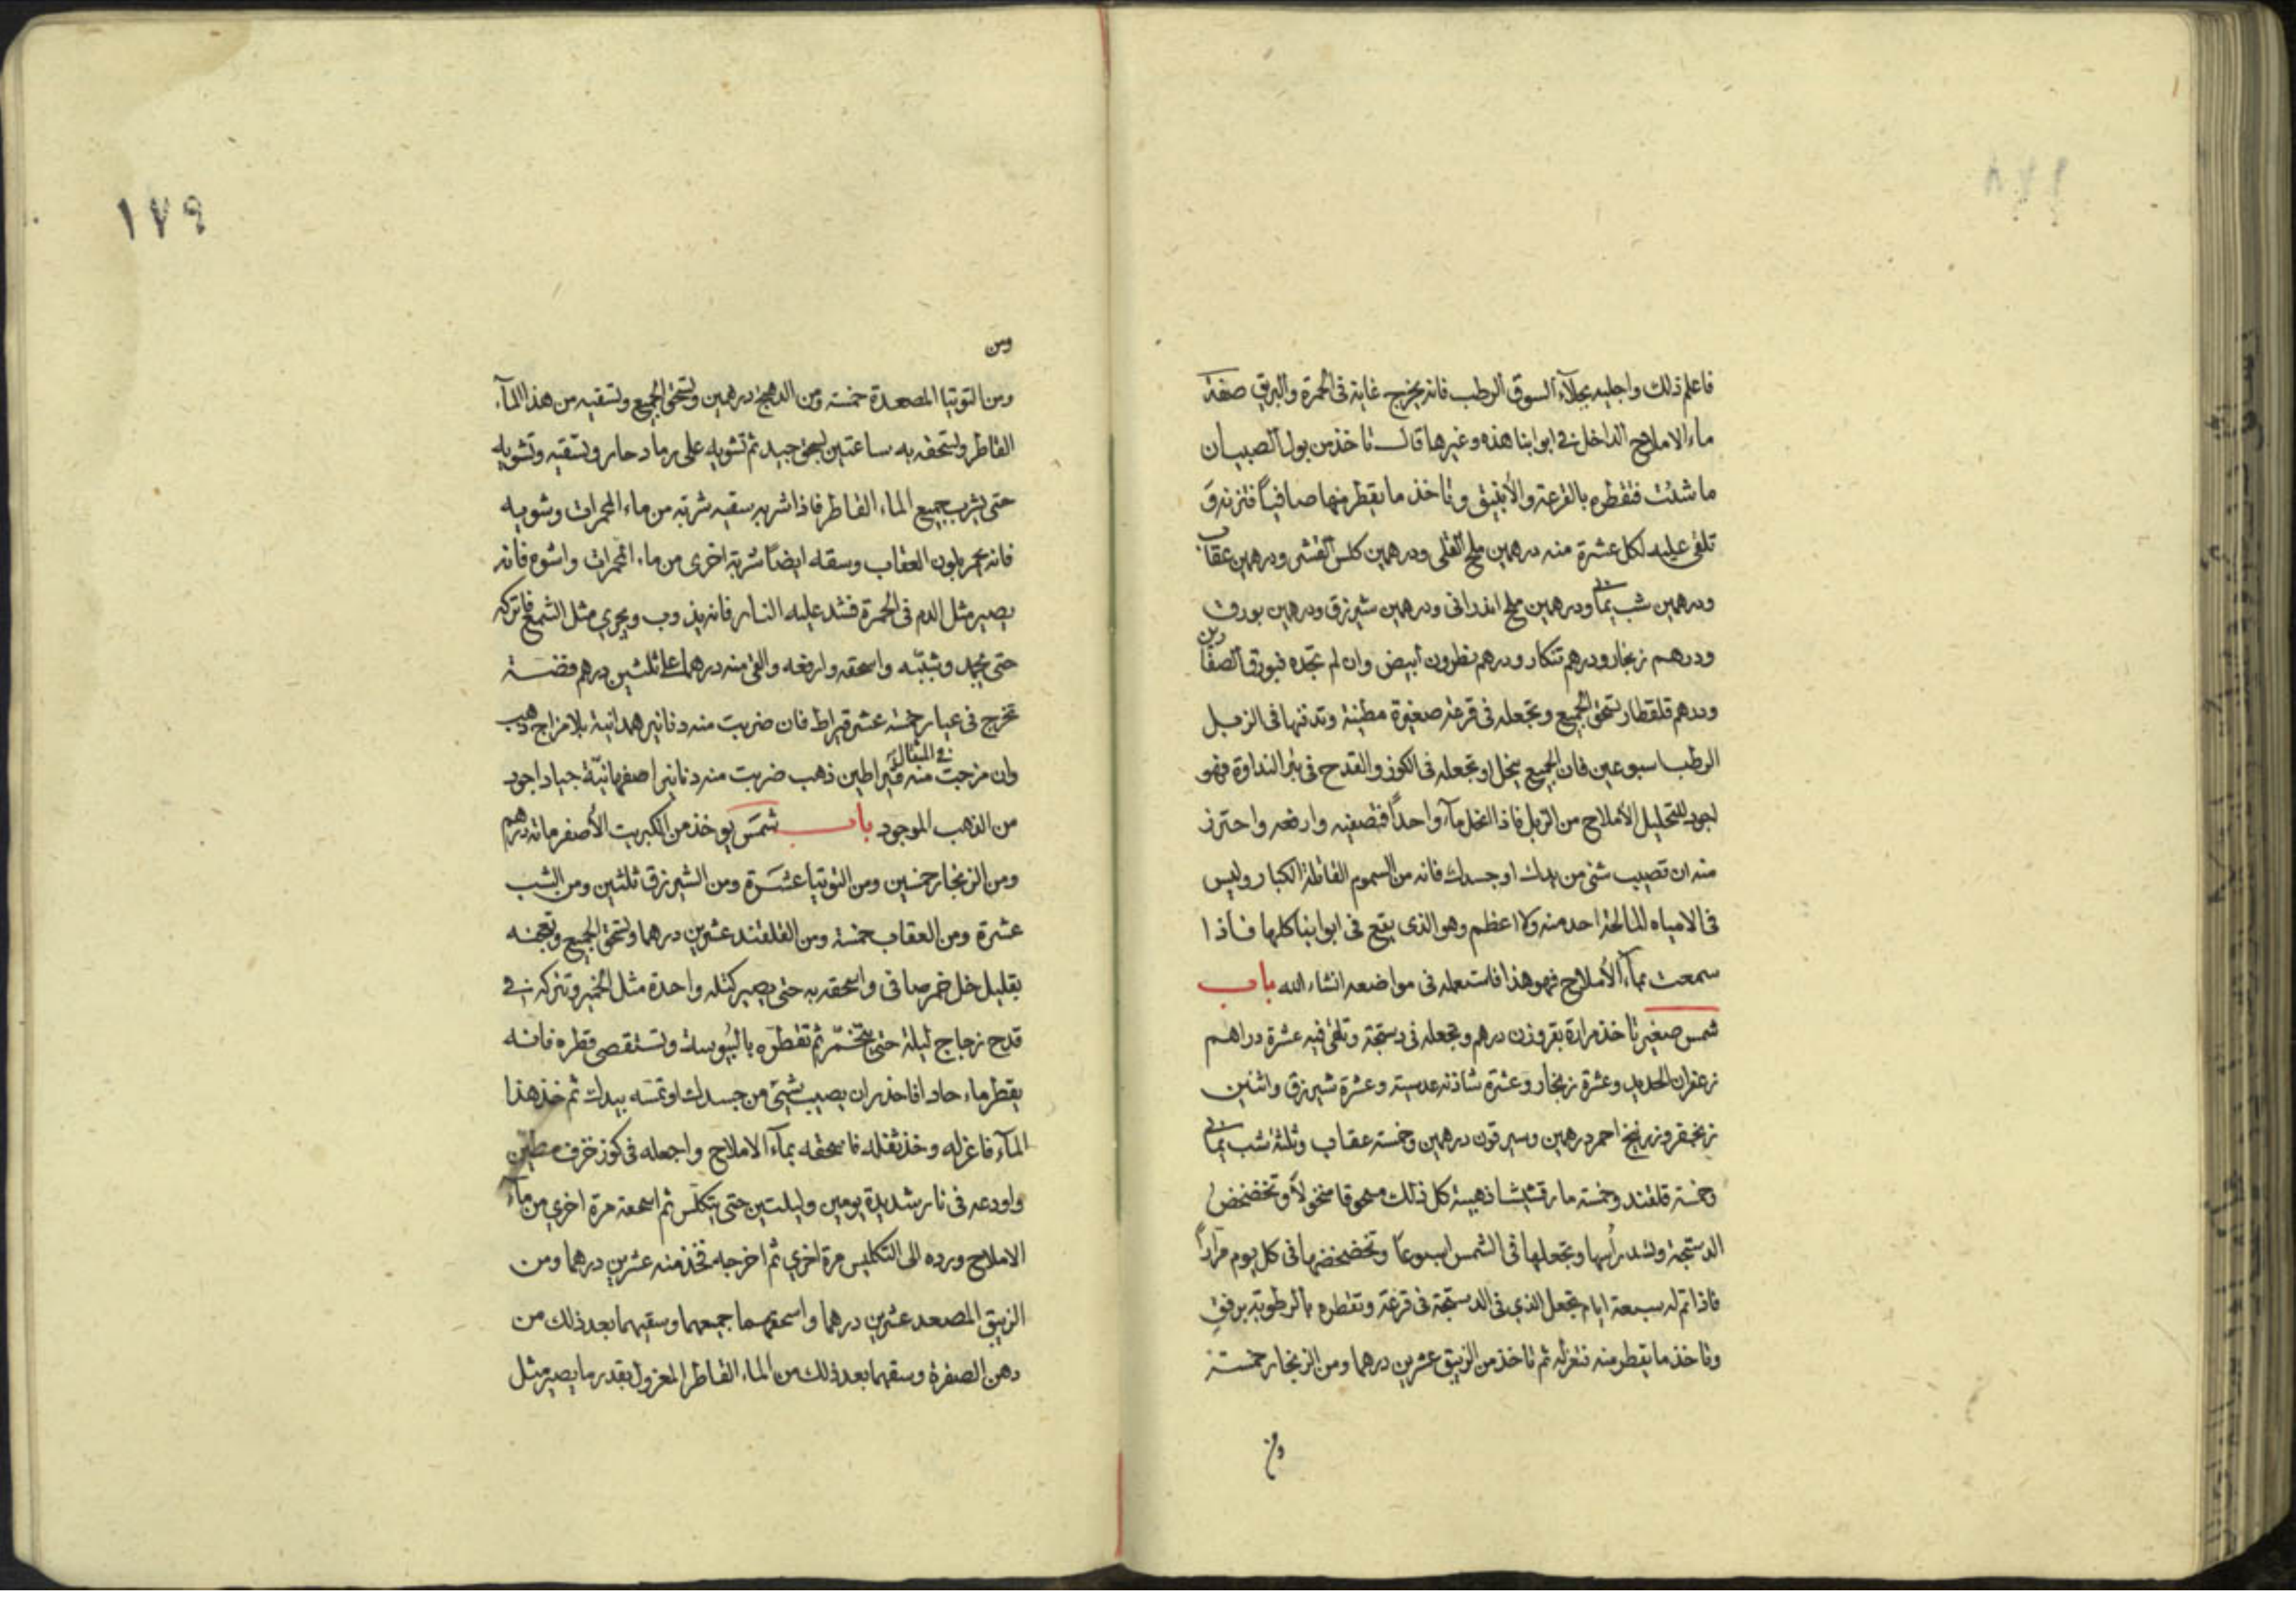 فاعلم ذلك واجليه بجلاء السوق الرطب فانه يخرج غاية فى الحمرة والبريق صفة
ماء الاملاح الداخل فى ابوابنا هذه وغيرها قال تاخذ من بول الصبيان
ما شئت فتقطره بالقرعة والأنبيق وتاخذ ما يقطر منها صافياً فتزنه و
تلقى عليه لكل عشرة منه درهمين ملح القلى ودرهمين كلس القشر ودرهمين عقاب
ودرهمين شب يمانى ودرهمين ملح اندرانى ودرهمين شيرزق ودرهمين بورق
ودرهم زنجار ودرهم تنكار ودرهم نطرون أبيض وان لم تجده فبورق الصفارين
ودرهم قلقطار تسحق الجميع وتجعله فى قرعة صغيرة مطينة وتدفنها فى الزبل
الرطب اسبوعين فان الجميع ينحل او تجعله فى الكوز والقدح فى بئر النداوة فهو
اجود لتحليل الأملاح من الزبل فاذا انحل مآء واحداً فتصفيه وارفعه واحترز
منه ان تصيب شئ من يدك او جسدك فانه من السموم القاتلة الكبار وليس
فى الامياه المالحة احد منه ولا اعظم وهو الذى يقع فى ابوابنا كلها فاذا
سمعت بمآء الأملاح فهو هذا فاستعمله فى مواضعه انشاء الله باب
شمس صغير تاخذ مرارة بقر وزن درهم وتجعله فى دستجة وتلقى فيه عشرة دراهم
زعفران الحديد وعشرة زنجار وعشرة شاذنه عدسية وعشرة شيرزق واثنين
زنجفر وزرنيخ احمر درهمين وسيرقون درهمين وخمسة عقاب وثلثة شب يمانى
وخمسة قلقند وخمسة مارقشيشا ذهبية كل ذلك مسحوقا منخولاً وتخضخض
الدستجة وتشد رأسها وتجعلها فى الشمس اسبوعاً وتخضخضها فى كل يوم مراراً
فاذا تم له سبعة ايام تجعل الذى فى الدستجة فى قرعة وتقطره بالرطوبة برفق
وتاخذ ما يقطر منه فتعزله ثم تاخذ من الزيبق عشرين درهما ومن الزنجار خمسة
ومن
١٧٩
ومن
ومن التوتيا المصعدة خمسة ومن الدهنج درهمين وتسحق الجميع وتسقيه من هذا المآء
القاطر وتسحقه به ساعتين سحق جيد ثم تشويه على رماد حار وتسقيه وتشويه
حتى يشرب جميع الماء القاطر فاذا شربه سقيه شربة من ماء المحمرات وشويه
فانه يحمر بلون العقاب وسقه ايضاً شربة اخرى من ماء المحمرات واشوه فانه
يصير مثل الدم فى الحمرة فشد عليه النار فانه يذوب ويجرى مثل الشمع فاتركه
حتى يجمد وشبّبه واسحقه وارفعه والق منه درهما على ثلثين درهم فضة
تخرج فى عيار خمسة عشر قيراط فان ضربت منه دنانير همدانية بلا مزاج ذهب
وان مزجت منه فى المثقال قيراطين ذهب ضربت منه دنانير اصفهانيّة جياد اجود
من الذهب الموجود باب شمس يوخذ من الكبريت الأصفر مائة درهم
ومن الزنجار خمسين ومن التوتيا عشرة ومن الشيرزق ثلثين ومن الشب
عشرة ومن العقاب خمسة ومن القلقند عشرين درهما وتسحق الجميع وتعجنه
بقليل خل خمر صافى واسحقه به حتى يصير كتلة واحدة مثل الخمير وتتركه فى
قدح زجاج ليلة حتى يتخمّر ثم تقطره باليبوسة وتستقصى قطره فانه
يقطر ماء حاد فاحذر ان يصيب شئ من جسدك او تمسه بيدك ثم خذ هذا
المآء فاعزله وخذ ثفله فاسحقه بمآء الاملاح واجعله فى كوز خزف مطين
واودعه فى نار شديدة يومين وليلتين حتى يتكلّس ثم اسحقه مرة اخرى من مآء
الاملاح ورده الى التكليس مرة اخرى ثم اخرجه فخذ منه عشرين درهما ومن
الزيبق المصعد عشرين درهما واسحقهما جميعهما وسقيهما بعد ذلك من
دهن الصفرة وسقهما بعد ذلك من الماء القاطر المعزول بقدر ما يصير مثل